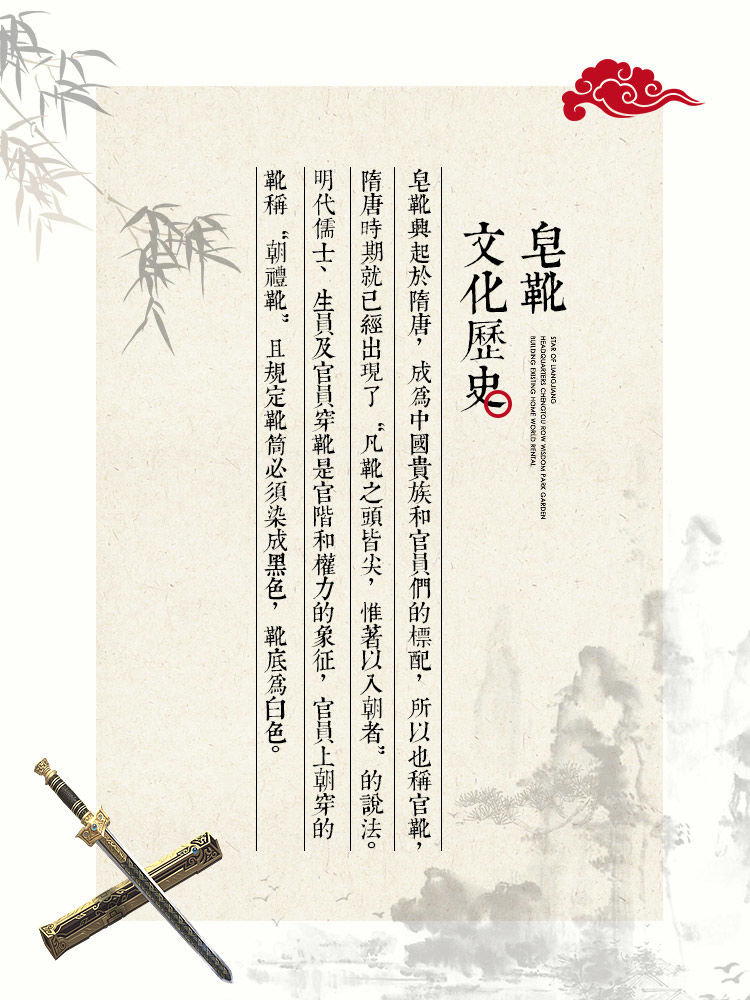 皂靴
文化歷史
STAR OF LIANGJIANG
HEADQUARTERS CHENGTOU ROW WISDOM PARK GARDEN
BUILDING EXISTING HOME WORLD RENTAL
皂靴興起於隋唐，成爲中國貴族和官員們的標配，所以也稱官靴，
隋唐時期就已經出現了“凡靴之頭皆尖，惟著以入朝者”的說法。
明代儒士、生員及官員穿靴是官階和權力的象征，官員上朝穿的
靴稱“朝禮靴”且規定靴筒必須染成黑色，靴底爲白色。